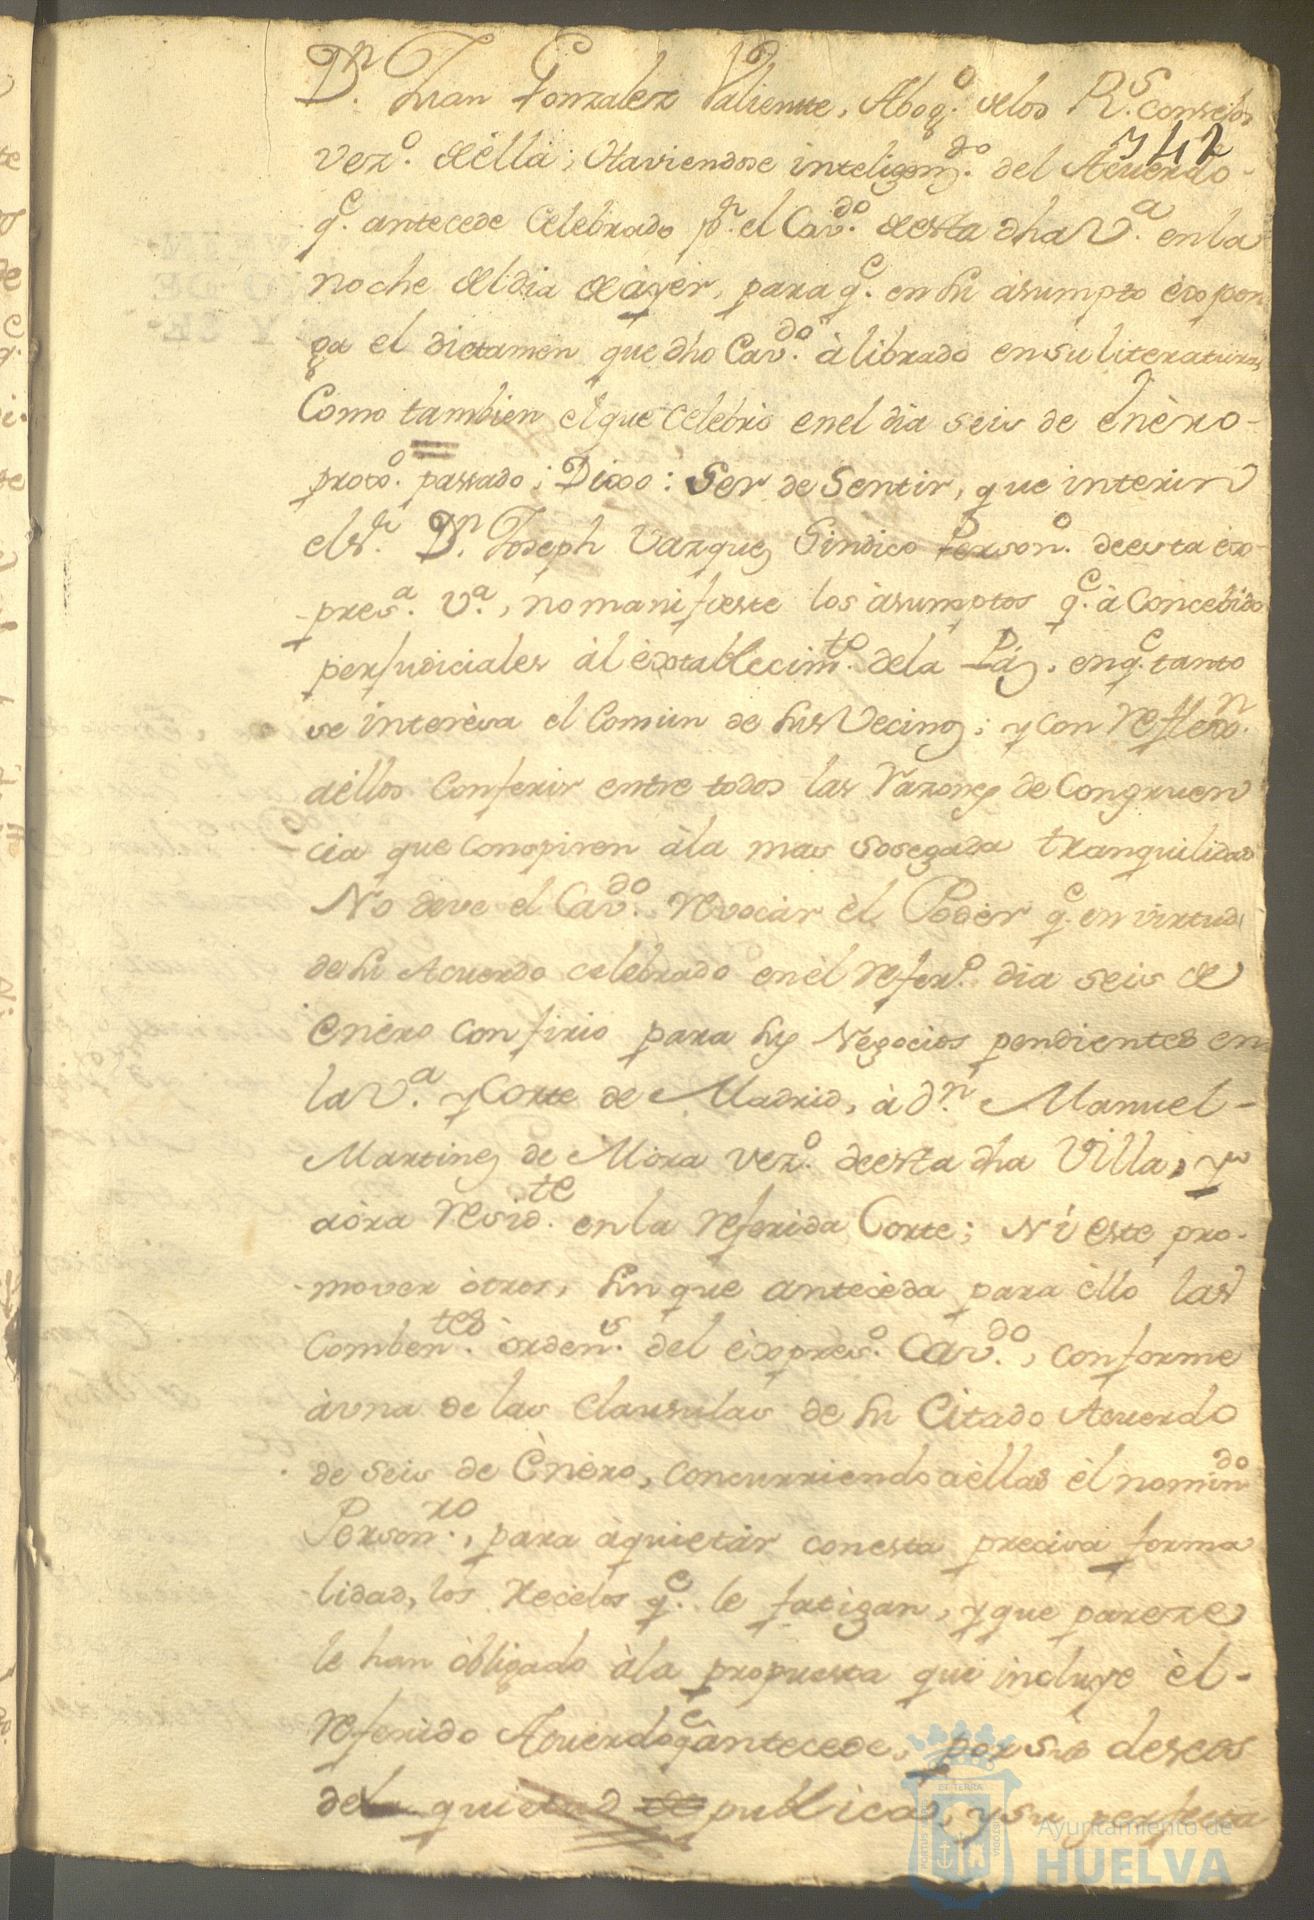 Dn. Juan Gonzalez Valiente, Abogo. delos Rs. Consejos
342
vezo. de èlla; Haviendose inteligenzdo. del Acuerdo-
qe. antecede Celebrado pr. el Cavdo. de esta dha Va. en la
noche del dia de àyer, para qe. en su àsumpto èxpon
ga el dictamen que dho Cavdo. à librado en su literatura,
Como tambien el que Celebrò en el dia seis de Enèro-
proxo. passado; Dixo: Ser de Sentir, que interin
el sr. Dn. Joseph Vazquez Sindico Persono. de esta èx-
-presa. Va., no manifieste los àsumptos qe. à Concebido
perjudiciales àl èxtablecimto. dela Paz, en qe. tanto
se interèsa el Comùn de sus Vecinos; y con reflexn.
àèllos Conferir entre todos las razones de Congruen
cia que conspiren àla mas sosegada tranquilidad
No deve el Cavdo. revocàr èl Podèr qe. en virtud
de su Acuerdo celebrado en èl refero. dia seis de
Enèro confirio para sus Negocios pendientes en
la Va. y Corte de Madrid, à dn. Manuel-
Martinez de Mòra vezo. de esta dha Villa, y
aòra residte. en la referida Corte; Ni èste pro-
-mover òtros, sin que antecèda para èllo las
Combentes. òrdens. del èxpreso. Cavdo., conforme
àvna de las Clausulas de su Citado Acuerdo
de seis de Enèro, concurriendo aèllas èl nomindo.
Personro., para àquietàr con esta preciva forma
lidad, los recelos qe. le fatigan, y que pareze
le han òbligado àla propuesta que incluye èl-
referido Acuerdo qe antecede, por sus deseos
de quietud publica, y su perfecta
ET TERRA
Ayuntamiento de
HUELVA